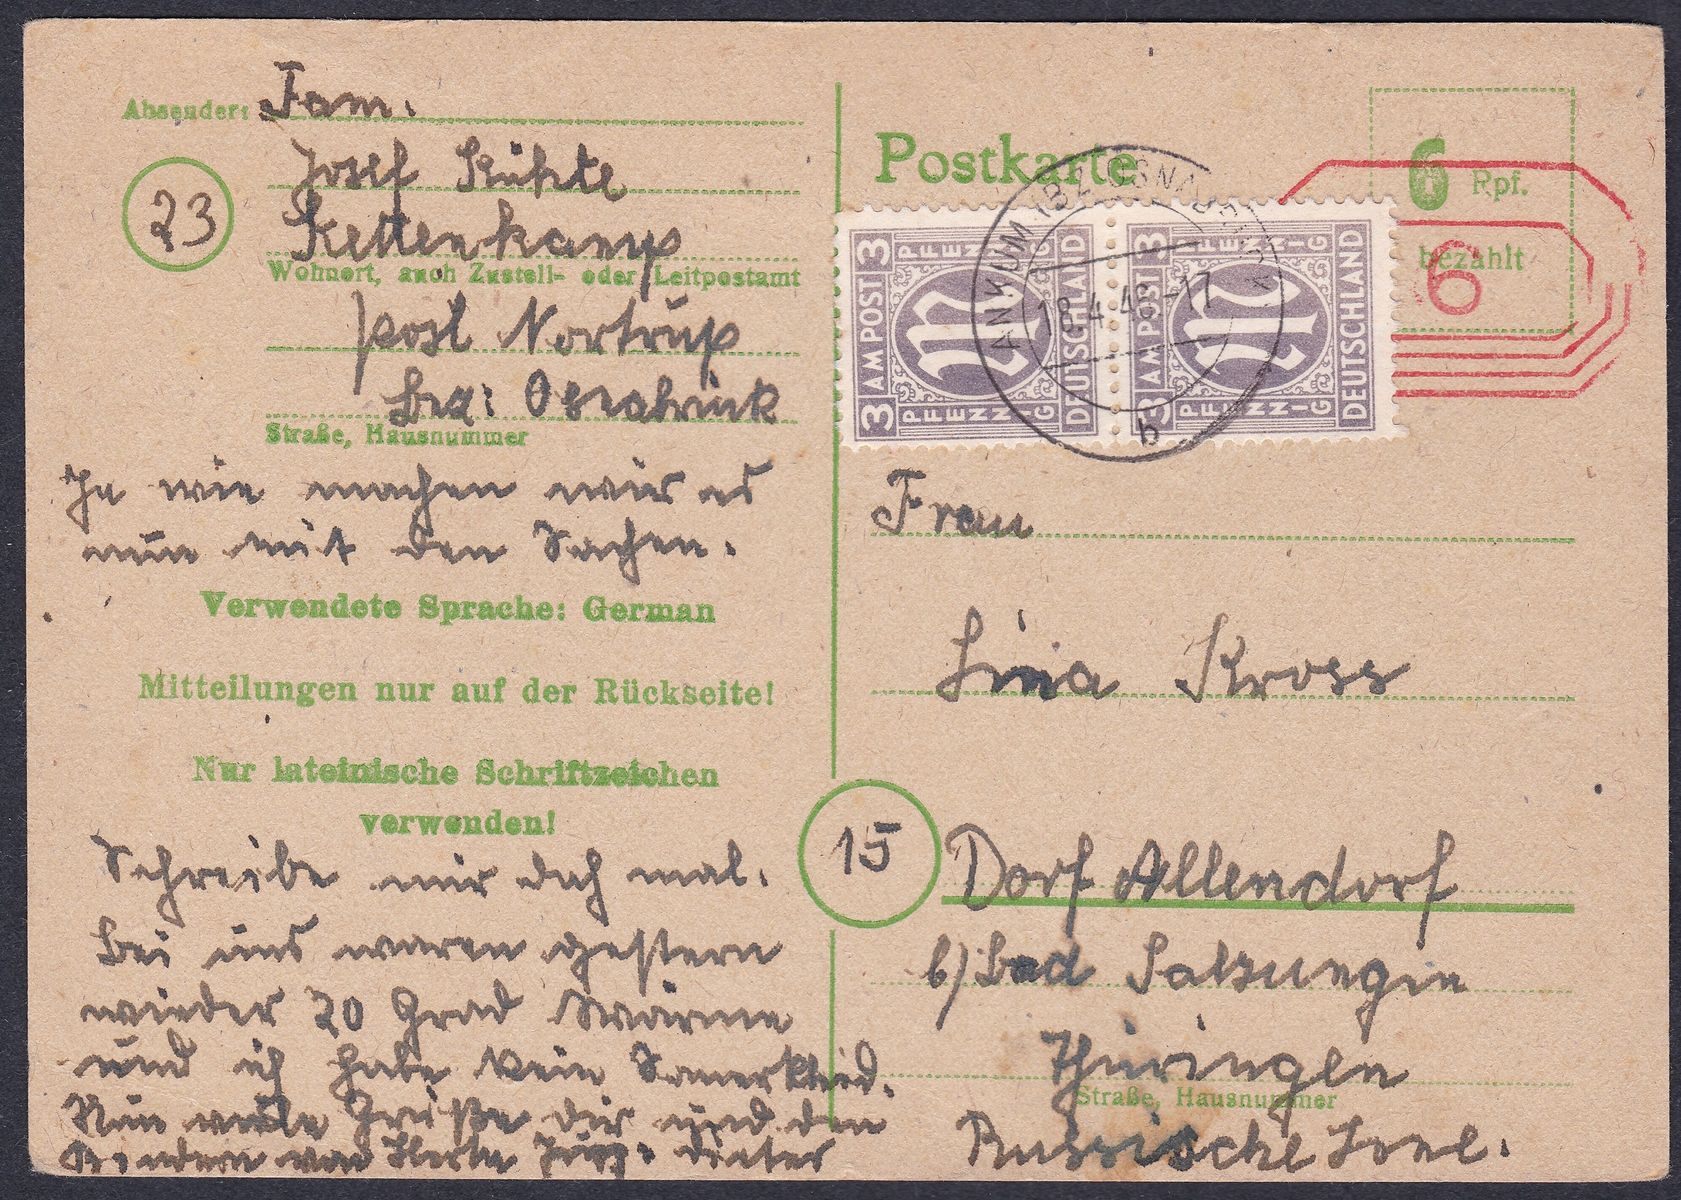 Absender: Fam.
Josef
23
Kettenkamp
Wohnort, auch Zustell- oder Leitpostamt
post Nortrup
Bez: Osnabrück
Straße, Hausnummer
Ja wie machen wir es
nun mit den Sachen.
Verwendete Sprache: German
Mitteilungen nur auf der Rückseite!
Nur lateinische Schriftzeichen
verwenden!
Schreibe mir doch mal.
Bei uns waren gestern
wieder 20 Grad Wärme
und ich habe kein
Nun viele Grüße dir und den
Kindern von Herta
Postkarte
6 Rpf.
bezahlt
6
3 AM POST 3
PFENNIG
DEUTSCHLAND
PFENNIG
3 AM POST 3
PFENNIG
DEUTSCHLAND
PFENNIG
ANKUM (BZ OSNABRÜCK)
18.4.46-17
b
Frau
Lina Kross
15
Dorf Allendorf
b/Bad Salzungen
Thüringen
Straße, Hausnummer
Russische